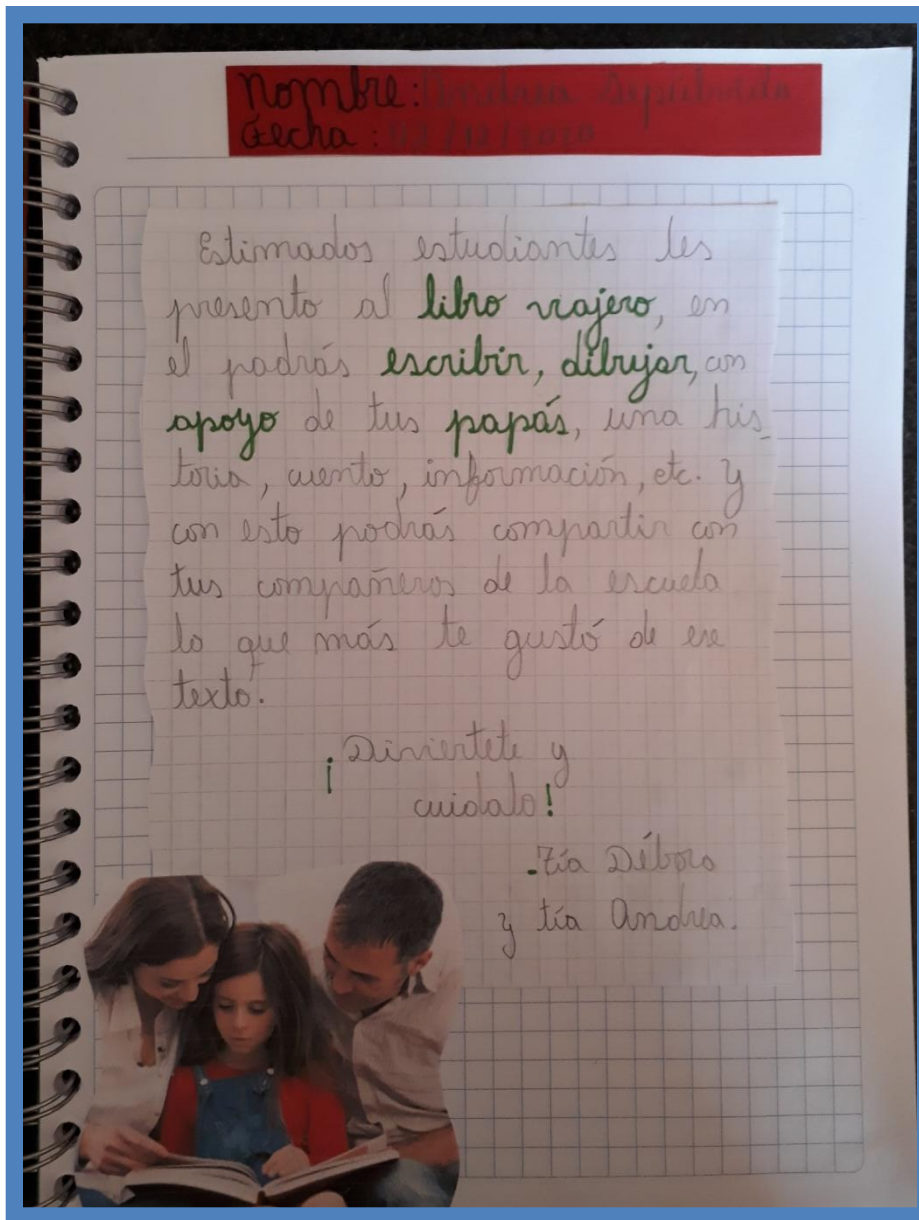 Nombre: Andrea Sepúlveda
Fecha: /12/2020
Estimados estudiantes les
presento al libro viajero, en
el podrás escribir, dibujar, con
apoyo de tus papás, una his_
toria, cuento, información, etc. y
con esto podrás compartir con
tus compañeros de la escuela
lo que más te gustó de ese
texto.
¡Diviertete y
cuidalo!
-Tía Débora
y tía Andrea.